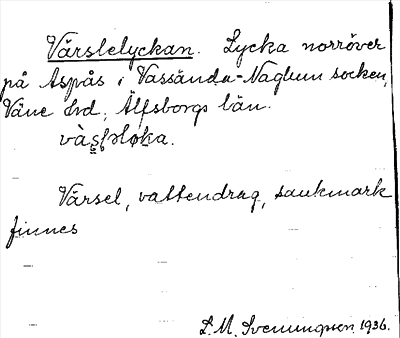 Värslelyckan. Lycka norröver
på Aspås i Vassända-Naglum socken,
Väne hd, Älfsborgs län.

Värsel, vattendrag, sankmark
finnes
S. M. Svenungsson 1936.